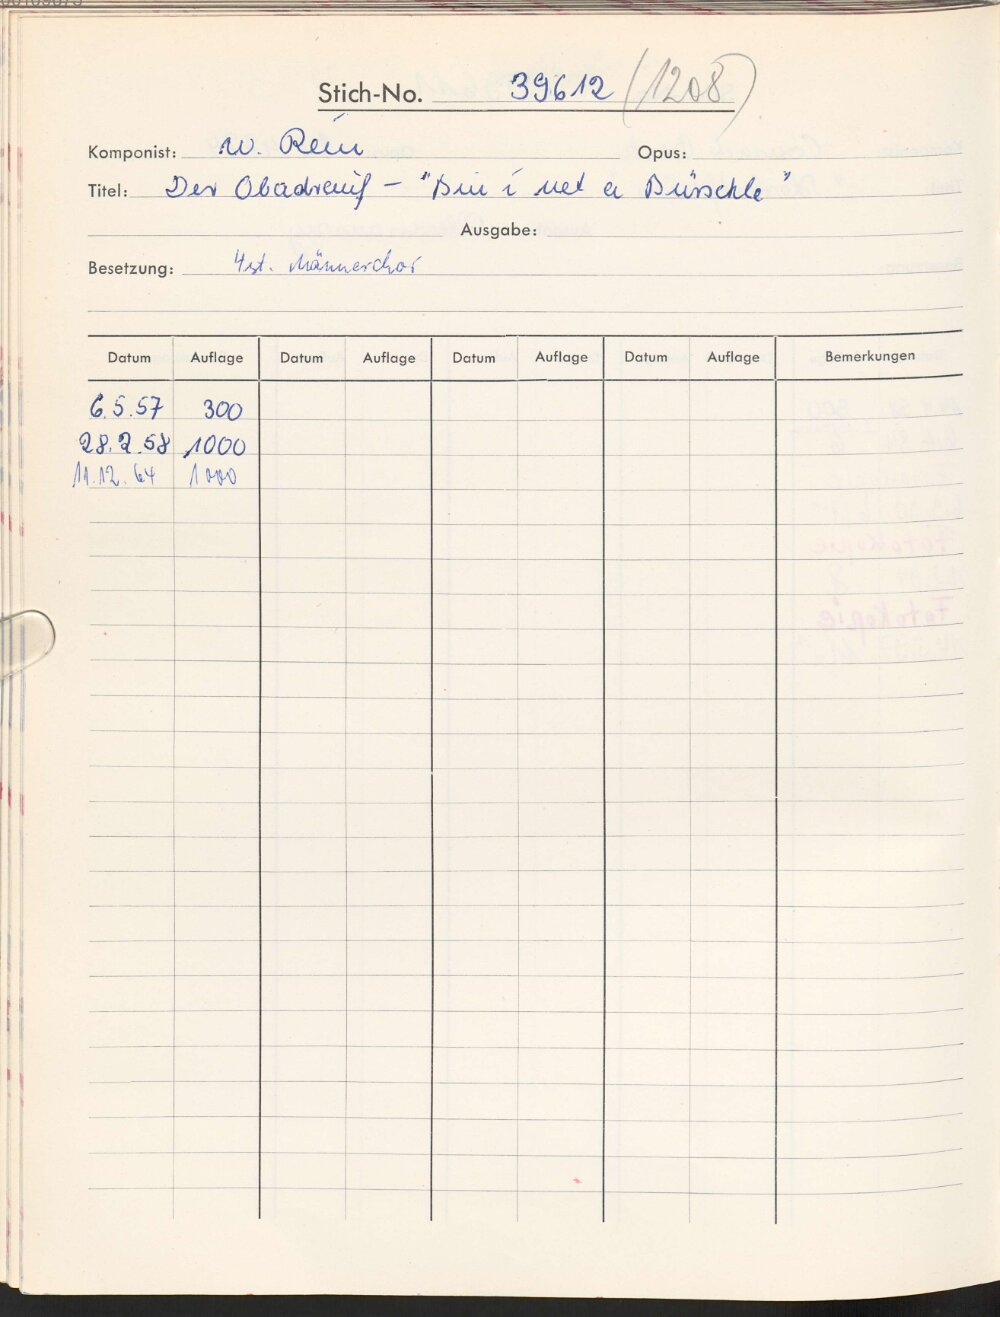 Stich-No. 39612 (1208)
Komponist: W. Rein Opus:
Titel: Der Obadrauf - "Bin i net a Bürschle"
Ausgabe:
Besetzung: 4st. Männerchor
Datum Auflage Datum Auflage Datum Auflage Datum Auflage Bemerkungen
6.5.57 300
28.2.58 1000
11.12.64 1000